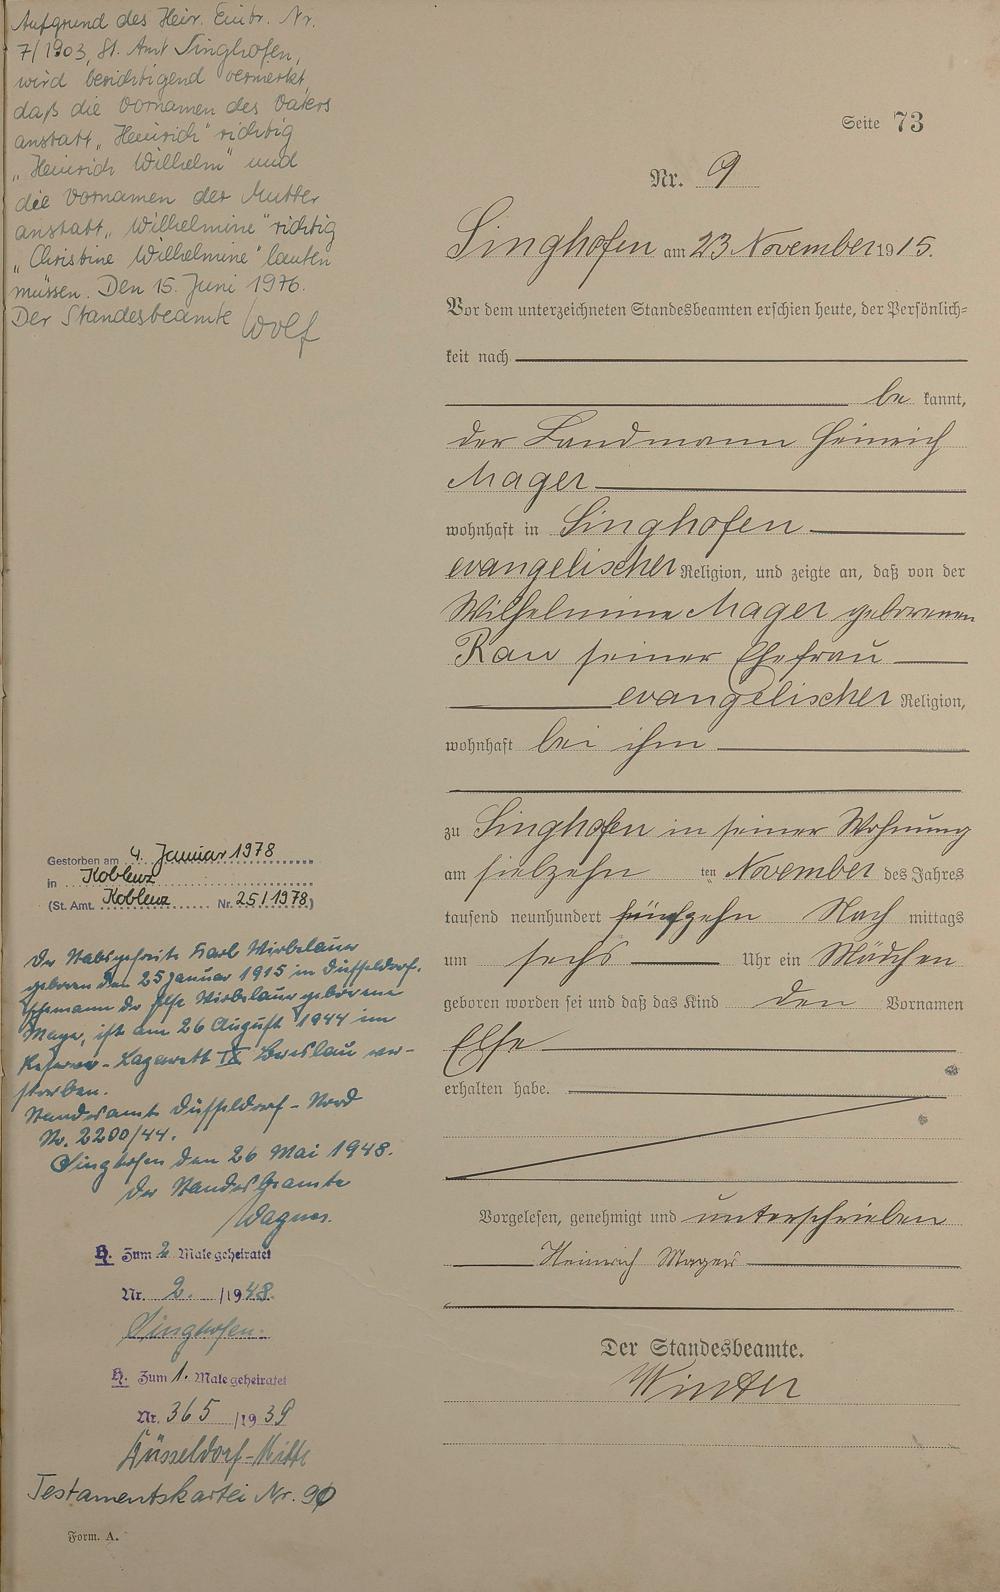 Aufgrund des Heir. Eintr. Nr.
7/1903, St. Amt Singhofen,
wird berichtigend vermerkt,
daß die Vornamen des Vaters
anstatt „Heinrich" richtig
„Heinrich Wilhelm" und
die Vornamen der Mutter
anstatt „Wilhelmine" richtig
„Christine Wilhelmine" lauten
müssen. Den 15. Juni 1976.
Der Standesbeamte Wolf
Seite 73
Nr. 9
Singhofen am 23 November 1915.
Vor dem unterzeichneten Standesbeamten erschien heute, der Persönlich-
keit nach
be kannt,
der Landmann Heinrich
Mager
wohnhaft in Singhofen
evangelischer Religion, und zeigte an, daß von der
Wilhelmine Mager geborenen
Rau seiner Ehefrau
evangelischer Religion,
wohnhaft bei ihm
zu Singhofen in seiner Wohnung
am siebzehn ten November des Jahres
tausend neunhundert fünfzehn Nach mittags
um sechs Uhr ein Mädchen
geboren worden sei und daß das Kind den Vornamen
Else
erhalten habe.
Vorgelesen, genehmigt und unterschrieben
Heinrich Mager
Der Standesbeamte.
Winter
Gestorben am 4. Januar 1978
in Koblenz
(St. Amt. Koblenz Nr. 25/1978)
Der Stabsgefreite Karl Wirbelauer
geboren den 25 Januar 1915 in Düsseldorf,
Ehemann der Else Wirbelauer geborene
Mager, ist am 26 August 1944 im
Reserve-Lazarett IX Breslau ver-
storben.
Standesamt Düsseldorf-Nord
Nr. 2200/44.
Singhofen den 26 Mai 1948.
Der Standesbeamte
Wagner.
H. Zum 2 Male geheiratet
Nr. 2. /1948.
Singhofen.
H. Zum 1. Male geheiratet
Nr. 365 /1939
Düsseldorf-Mitte
Testamentskartei Nr. 90
Form. A.